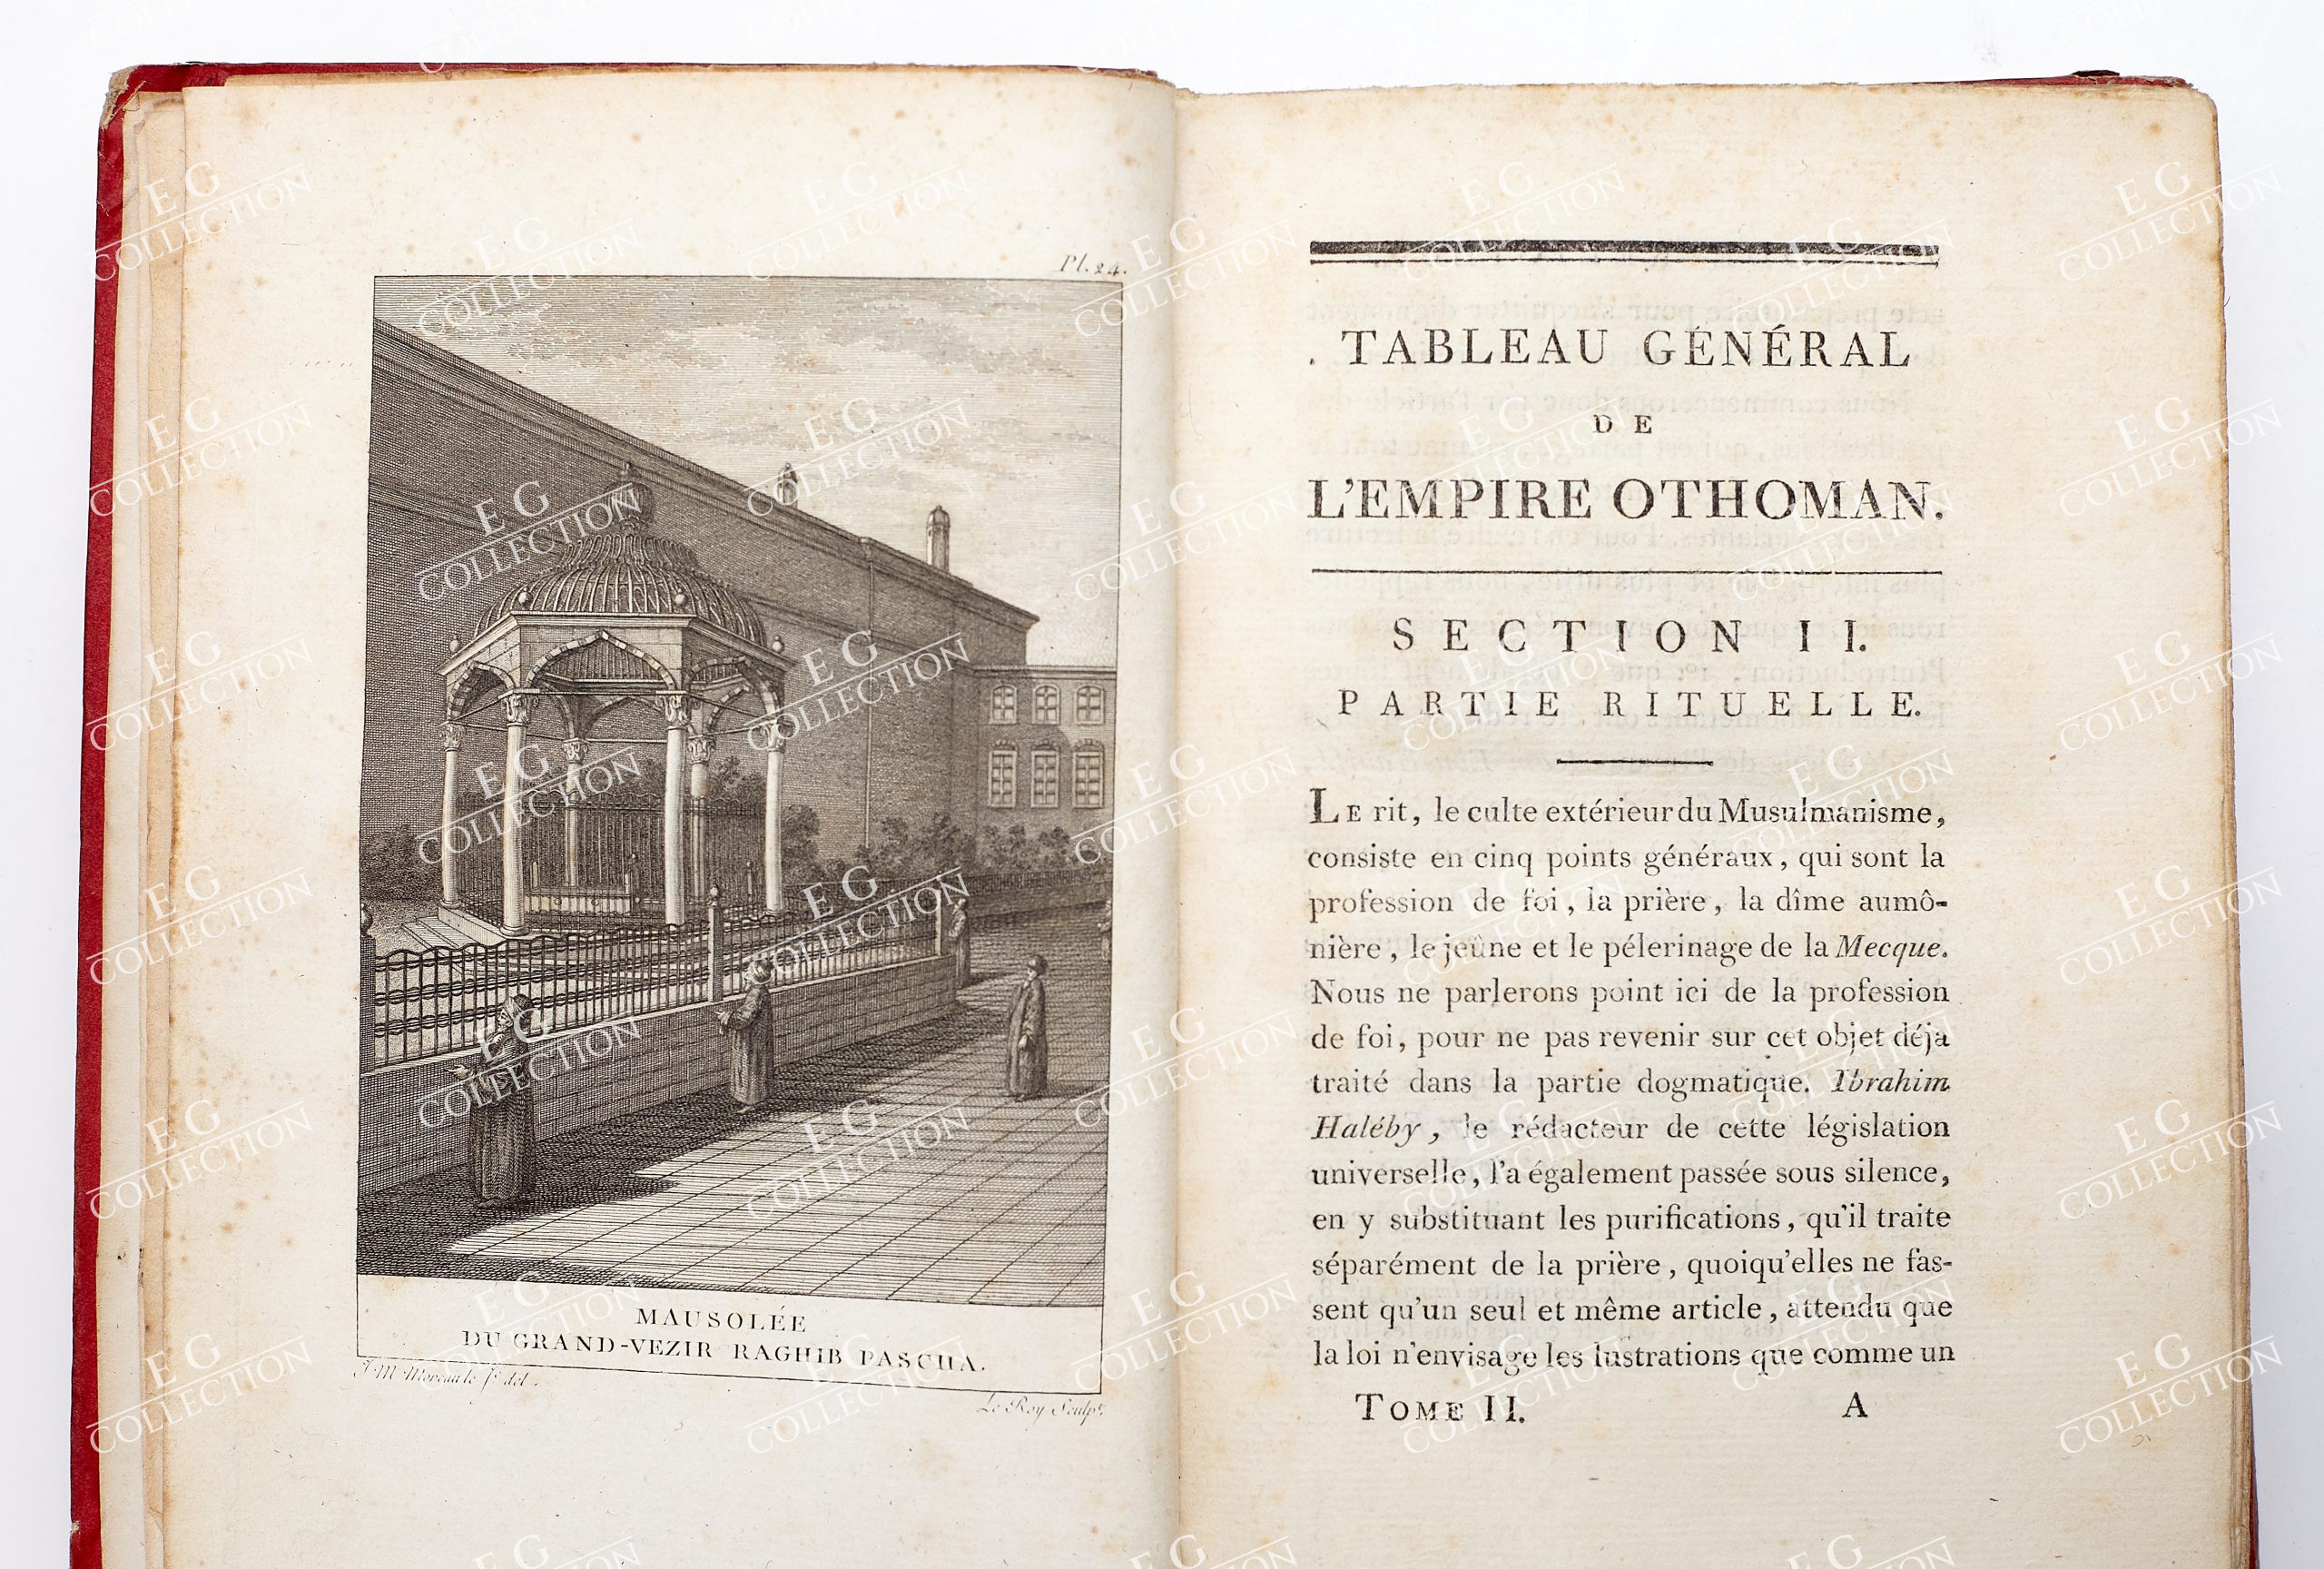 Pl. 24.
MAUSOLÉE
DU GRAND-VEZIR RAGHIB PASCHA.
J. M. Moreau le Je. del.
Le Roy Sculpt.
TABLEAU GÉNÉRAL
DE
L'EMPIRE OTHOMAN.
SECTION II.
PARTIE RITUELLE.
LE rit, le culte extérieur du Musulmanisme,
consiste en cinq points généraux, qui sont la
profession de foi, la prière, la dîme aumô-
nière, le jeûne et le pélerinage de la Mecque.
Nous ne parlerons point ici de la profession
de foi, pour ne pas revenir sur cet objet déja
traité dans la partie dogmatique. Ibrahim
Haléby, le rédacteur de cette législation
universelle, l'a également passée sous silence,
en y substituant les purifications, qu'il traite
séparément de la prière, quoiqu'elles ne fas-
sent qu'un seul et même article, attendu que
la loi n'envisage les lustrations que comme un
TOME II. A
E G
COLLECTION